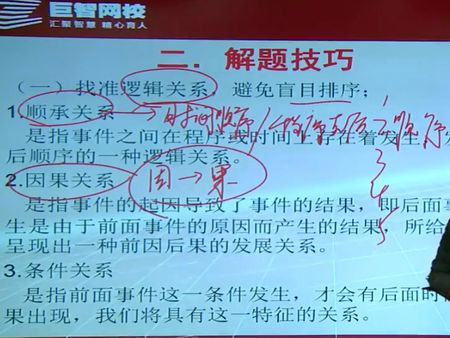 巨智网校
汇聚智慧 精心育人
二．解题技巧
（一）找准逻辑关系，避免盲目排序；
1.顺承关系 → 时间顺序
是指事件之间在程序或时间上存在着发生
后顺序的一种逻辑关系。
2.因果关系 因→果
是指事件的起因导致了事件的结果，即后面事
生是由于前面事件的原因而产生的结果，所给
呈现出一种前因后果的发展关系。
3.条件关系
是指前面事件这一条件发生，才会有后面时
果出现，我们将具有这一特征的关系。